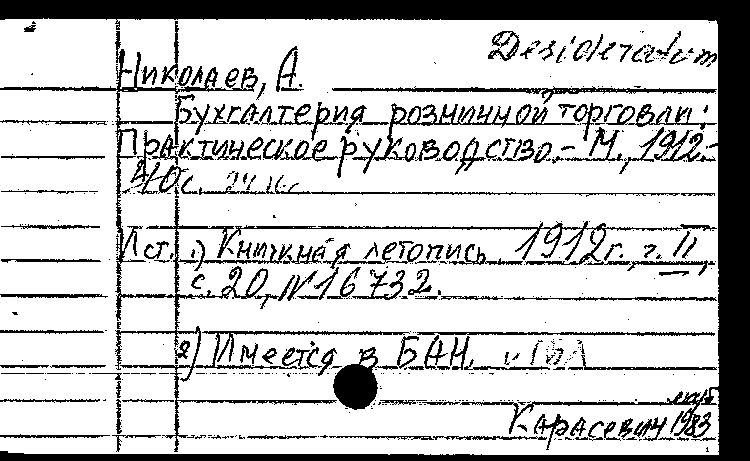 Desideratum
Николаев, А.
Бухгалтерия розничной торговли:
Практическое руководство.- М., 1912.-
40с.
Ист. 1) Книжная летопись. 1912г., т. II,
с. 20, № 16732.
2) Имеется в БАН.
Карасевич 1983